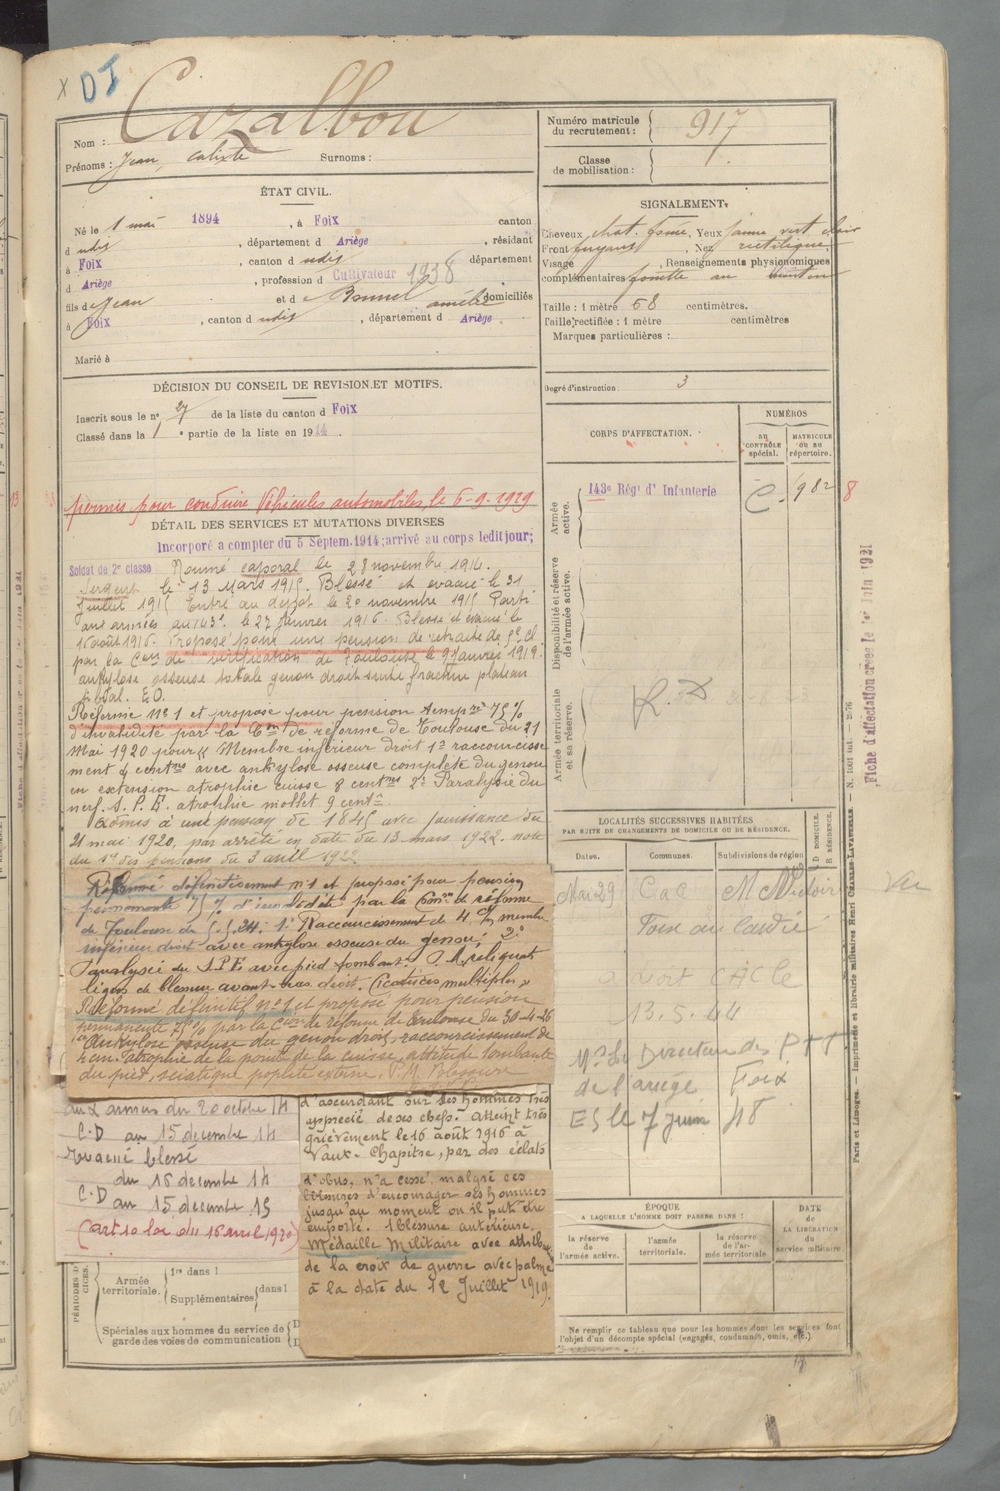 x DJ
Nom : Cazalbou
Prénoms : Jean, Calixte Surnoms :
Numéro matricule
du recrutement : 917
Classe
de mobilisation :
ÉTAT CIVIL.
Né le 1 mai 1894, à Foix canton
d udis, département d Ariège, résidant
à Foix, canton d udis département
d Ariège, profession d Cultivateur 1938
fils de Jean et d Bonnel Amélie domiciliés
à Foix, canton d udis, département d Ariège.
Marié à
SIGNALEMENT.
Cheveux chat. foncé, Yeux jaune vert clair
Front fuyant, Nez rectiligne,
Visage , Renseignements physionomiques
complémentaires fossette au menton
Taille : 1 mètre 68 centimètres.
Taille rectifiée : 1 mètre centimètres
Marques particulières :
Degré d'instruction : 3
DÉCISION DU CONSEIL DE REVISION ET MOTIFS.
Inscrit sous le n° 27 de la liste du canton d Foix
Classé dans la 1e partie de la liste en 1914.
permis pour conduire Véhicules automobiles, le 6-9-1929
DÉTAIL DES SERVICES ET MUTATIONS DIVERSES
Incorporé à compter du 5 Septem. 1914; arrivé au corps ledit jour;
Soldat de 2e classe Nommé caporal le 28 novembre 1914.
Sergent le 13 Mars 1915. Blessé et evacué le 31
juillet 1915 Entré au dépot le 20 novembre 1915 Parti
aux armées au 143e. le 27 janvier 1916. Blessé et évacué le
16 août 1916. Proposé pour une pension de retraite de 5e cl
par la Con de vérification de Toulouse le 9 Janvier 1919.
ankylose osseuse totale genou droit suite fracture plateau
tibial. E.O.
Réformé N° 1 et proposé pour pension tempre 75 %
d'invalidité par la Con de réforme de Toulouse du 21
Mai 1920 pour « Membre inférieur droit 1° raccourcisse
ment 4 centres avec ankylose osseuse complète du genou
en extension atrophie cuisse 8 centres 2° Paralysie du
nerf. S. P. E. atrophie mollet 9 cent.
Admis à une pension de 1845 avec jouissance du
21 mai 1920, par arrêté en date du 13 mars 1922. note
du 1er des pensions du 3 avril
Réformé définitivement n°1 et proposé pour pension
permanente 75 % d'invalidité par la Conon de réforme
de Toulouse du 5.5.24: 1° Raccourcissement de 4 c/m membre
inférieur droit avec ankylose osseuse du genou; 2°
Paralysie du S.P.E avec pied tombant. P.M. reliquat
léger de blessure avant-bras droit. Cicatrices multiples »
Réformé définitif n°1 et proposé pour pension
permanente 75% par la Con de réforme de Toulouse du 30-4-26
1° Ankylose osseuse du genou droit, raccourcissement de
4 cm. atrophie de la cuisse, attitude tombante
du pied, sciatique poplité externe. P.M. Blessure
aux armées du 20 octobre 14
C.D au 15 decembre 14
Evacué blessé
du 16 decembre 14
C.D au 15 decembre 15
(art 10 loi du 16 avril 1920)
d'ascendant sur ses hommes très
apprécié de ses chefs. Atteint très
grièvement le 16 août 1916 à
Vaux-Chapitre, par des éclats
d'obus, n'a cessé malgré ces
blessures d'encourager ses hommes
jusqu'au moment où il put être
emporté. 1 blessure antérieure.
Médaille Militaire avec attribu
de la croix de guerre avec palme
à la date du 12 Juillet 1919.
PÉRIODES D
CICES.
Armée
territoriale.
1re dans l
Supplémentaires dans l
Spéciales aux hommes du service de
garde des voies de communication
CORPS D'AFFECTATION.
NUMÉROS
AU
CONTRÔLE
spécial.
MATRICULE
OU AU
répertoire.
Armée
active.
143e Régt d'Infanterie C. 982 8
Disponibilité et réserve
de l'armée active.
Armée territoriale
et sa réserve.
LOCALITÉS SUCCESSIVES HABITÉES
PAR SUITE DE CHANGEMENTS DE DOMICILE OU DE RÉSIDENCE.
Dates. Communes. Subdivisions de région
D. DOMICILE.
R. RÉSIDENCE.
Mai 29
Foix
13.5.44
Mr Le Directeur des PTT
de l'ariége Foix
ES le 7 juin 48
ÉPOQUE
A LAQUELLE L'HOMME DOIT PASSER DANS :
la réserve
de l'armée active.
l'armée
territoriale.
la réserve
de l'ar-
mée territoriale.
DATE
de
LA LIBÉRATION
du
service militaire.
Ne remplir ce tableau que pour les hommes dont les services font
l'objet d'un décompte spécial (engagés, condamnés, omis, etc.)
Fiche d'affectation créée le 1er Juin 1931
Paris et Limoges. — Imprimerie et librairie militaires Henri CHARLES-LAVAUZELLE.
Vu